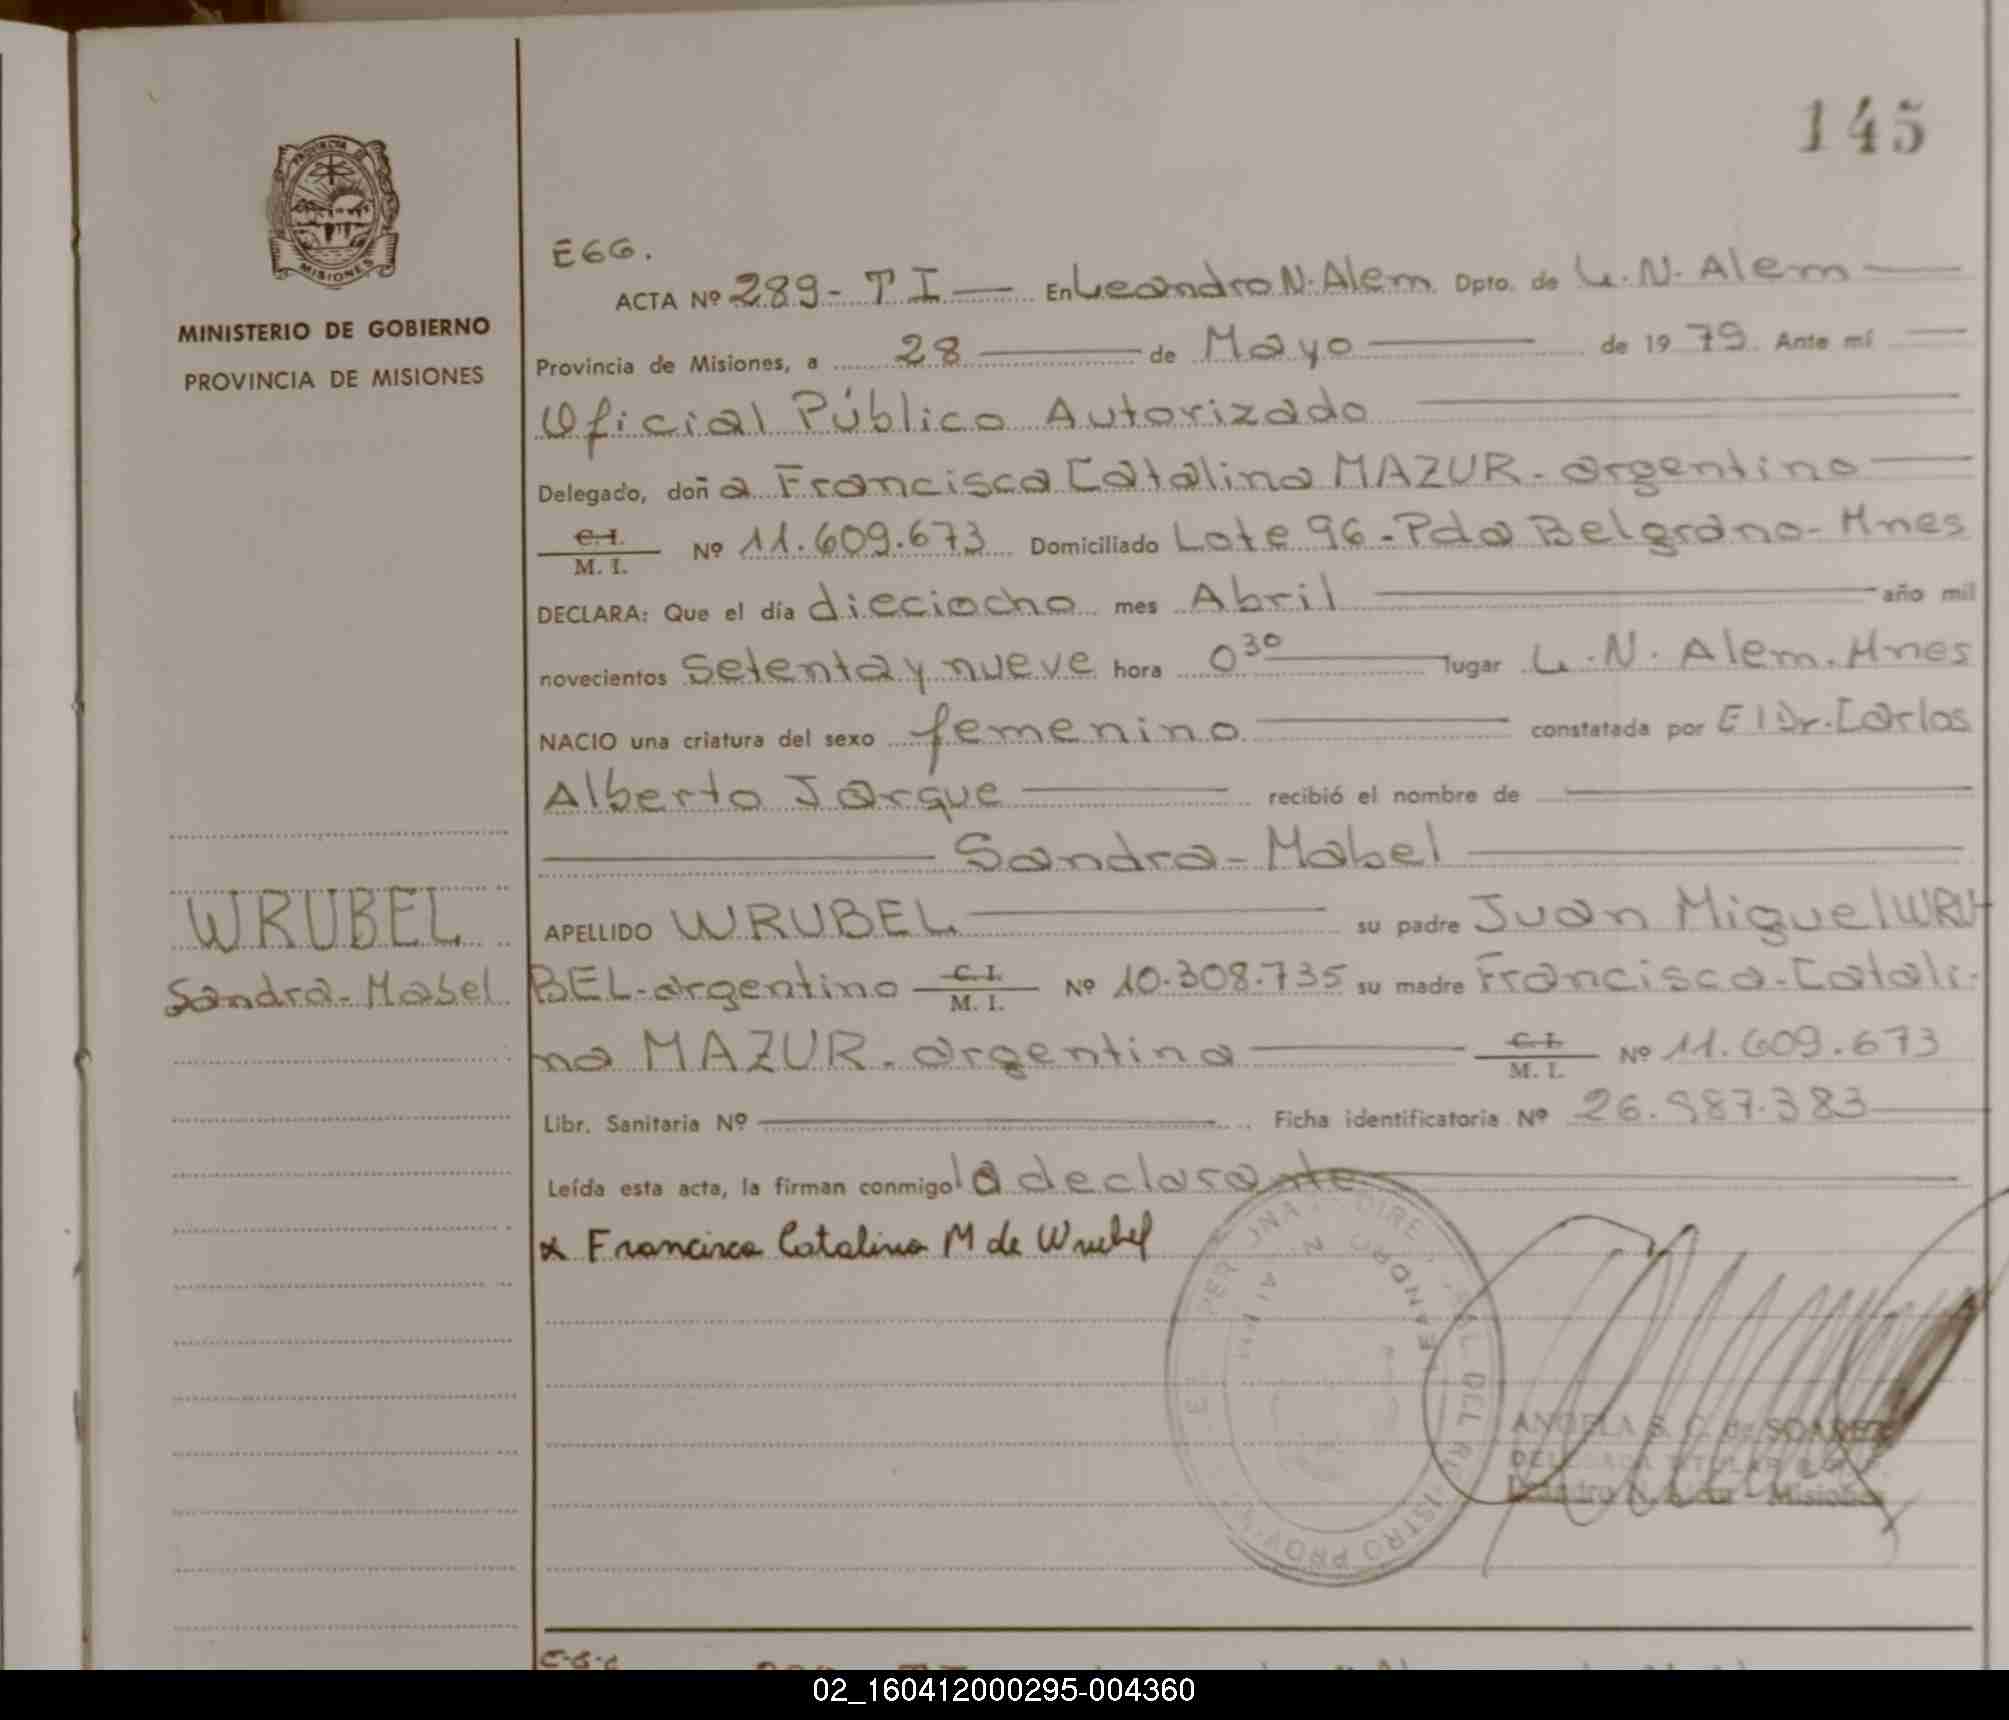 145
PROVINCIA DE
MISIONES
MINISTERIO DE GOBIERNO
PROVINCIA DE MISIONES
WRUBEL
Sandra-Mabel
EGG.
ACTA Nº 289- T I En Leandro N. Alem Dpto. de L. N. Alem
Provincia de Misiones, a 28 de Mayo de 1979. Ante mí
Oficial Público Autorizado
Delegado, doña Francisca Catalina MAZUR- argentina
C.I. M. I. Nº 11.609.673 Domiciliado Lote 96-Pda Belgrano-Mnes
DECLARA: Que el día dieciocho mes Abril año mil
novecientos setenta y nueve hora 0³⁰ lugar L.N. Alem. Mnes
NACIO una criatura del sexo femenino constatada por El Dr. Carlos
Alberto Jarque recibió el nombre de
Sandra-Mabel
APELLIDO WRUBEL su padre Juan Miguel WRU-
BEL-argentino C.I. M. I. Nº 10.308.735 su madre Francisca-Catali-
na MAZUR-argentina C.I. M. I. Nº 11.609.673
Libr. Sanitaria Nº Ficha identificatoria Nº 26.987.383
Leída esta acta, la firman conmigo la declarante
x Francisca Catalina M de Wrubel
ANGELA S. C. de SOAREZ
DELEGADA TITULAR
Leandro N. Alem - Misiones
02_160412000295-004360